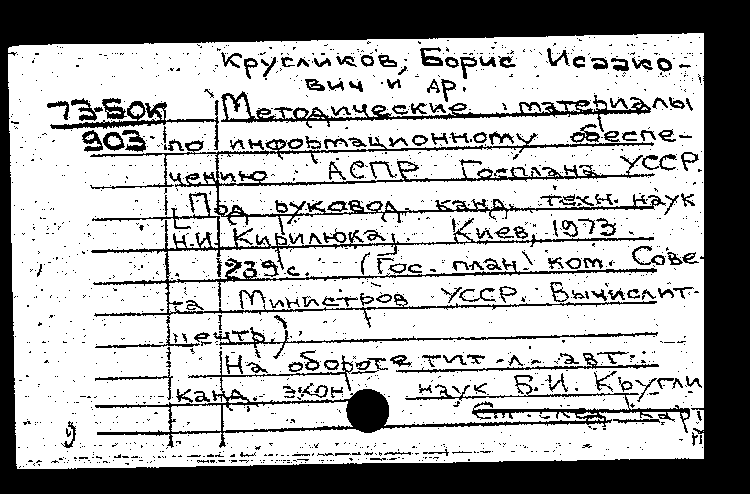 Кругликов, Борис Исаако-
вич и др.
73-БОК Методические материалы
903 по информационному обеспе-
чению АСПР Госплана УССР.
[Под руковод. канд. техн. наук
Н.И. Кирилюка]. Киев, 1973.
239 с. (Гос. план. ком. Сове-
та Министров УССР. Вычислит.
центр.)
На обороте тит. л. авт.:
канд. экон. наук Б.И. Кругли
См. след. карт